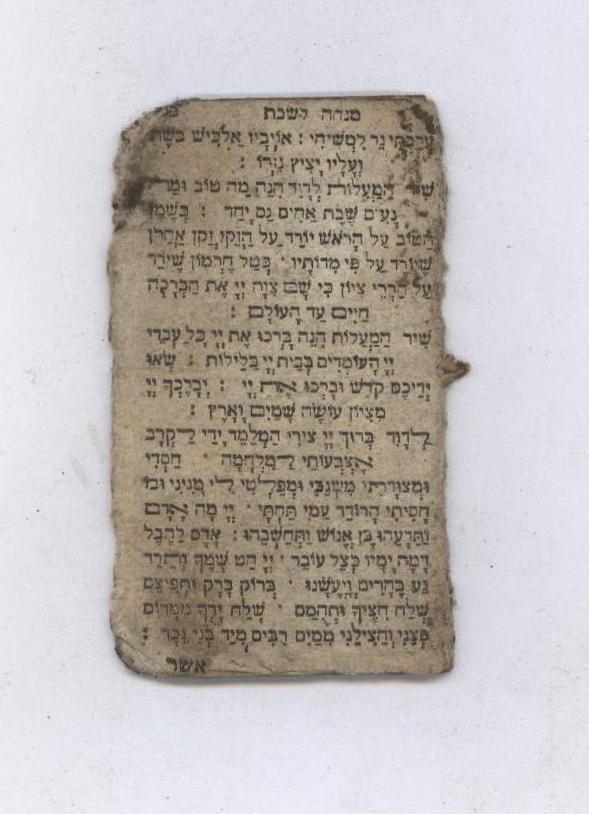 מנחה לשבת
עָרַכְתִּי נֵר לִמְשִׁיחִי : אוֹיְבָיו אַלְבִּישׁ בּשֶׁת
וְעָלָיו יָצִיץ נִזְרוֹ :
שִׁיר הַמַּעֲלוֹת לְדָוִד הִנֵּה מַה טוֹב וּמַה
נָעִים שֶׁבֶת אַחִים גַּם יָחַד : כַּשֶּׁמֶן
הַטּוֹב עַל הָרֹאשׁ יוֹרֵד עַל הַזָּקָן זְקַן אַהֲרֹן
שֶׁיּוֹרֵד עַל פִּי מִדּוֹתָיו · כְּטַל חֶרְמוֹן שֶׁיֹּרֵד
עַל הַרְרֵי צִיּוֹן כִּי שָׁם צִוָּה יְיָ אֶת הַבְּרָכָה
חַיִּים עַד הָעוֹלָם :
שִׁיר הַמַּעֲלוֹת הִנֵּה בָּרְכוּ אֶת יְיָ כָּל עַבְדֵי
יְיָ הָעוֹמְדִים בְּבֵית יְיָ בַּלֵּילוֹת : שְׂאוּ
יְדֵיכֶם קֹדֶשׁ וּבָרְכוּ אֶת יְיָ : יְבָרֶכְךָ יְיָ
מִצִּיּוֹן עוֹשֵׂה שָׁמַיִם וָאָרֶץ :
לְדָוִד בָּרוּךְ יְיָ צוּרִי הַמְלַמֵּד יָדַי לַקְרָב
אֶצְבְּעוֹתַי לַמִּלְחָמָה · חַסְדִּי
וּמְצוּדָתִי מִשְׂגַּבִּי וּמְפַלְטִי לִי מָגִינִּי וּבוֹ
חָסִיתִי הָרוֹדֵד עַמִּי תַחְתָּי · יְיָ מָה אָדָם
וַתֵּדָעֵהוּ בֶּן אֱנוֹשׁ וַתְּחַשְּׁבֵהוּ : אָדָם לַהֶבֶל
דָּמָה יָמָיו כְּצֵל עוֹבֵר · יְיָ הַט שָׁמֶיךָ וְתֵרֵד
גַּע בֶּהָרִים וְיֶעֱשָׁנוּ · בְּרוֹק בָּרָק וּתְפִיצֵם
שְׁלַח חִצֶּיךָ וּתְהֻמֵּם · שְׁלַח יָדֶךָ מִמָּרוֹם
פְּצֵנִי וְהַצִּילֵנִי מִמַּיִם רַבִּים מִיַּד בְּנֵי נֵכָר :
אשר